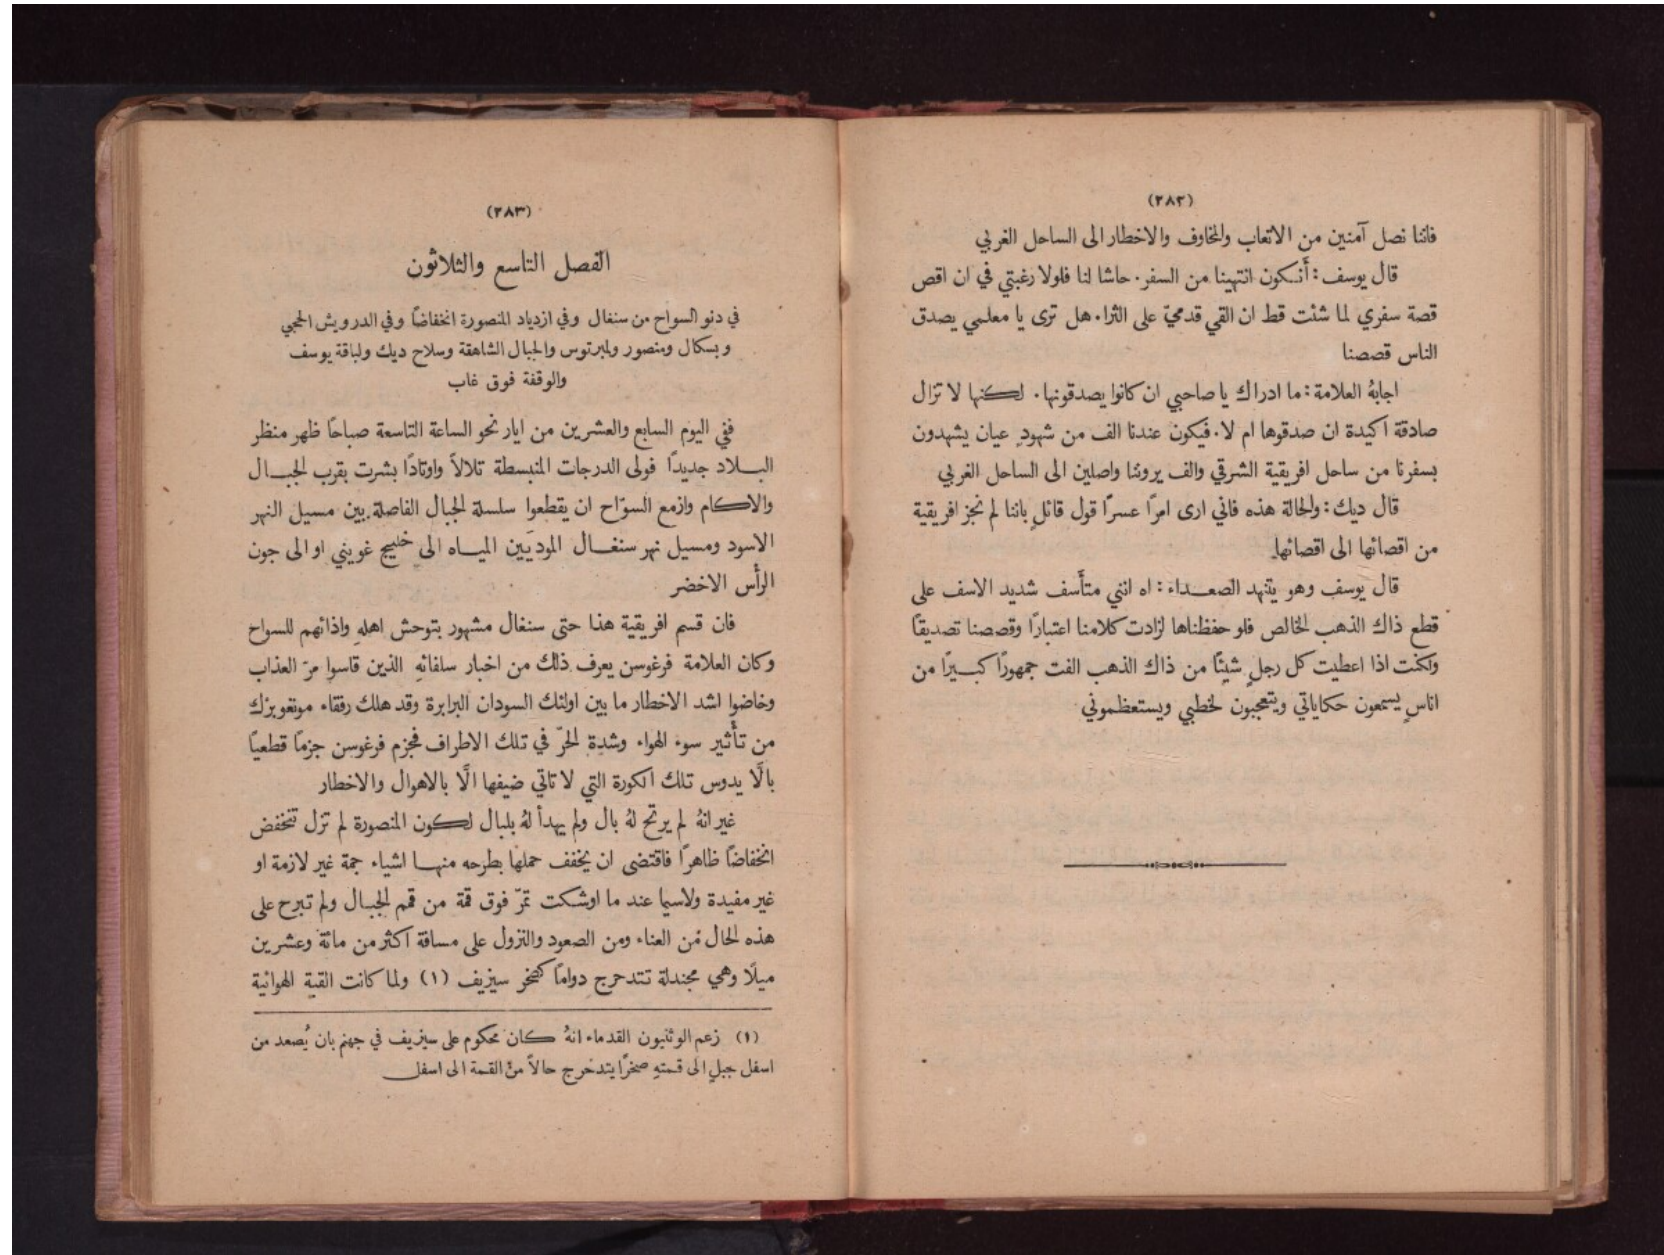 (٢٨٢)
فاننا نصل آمنين من الاتعاب والمخاوف والاخطار الى الساحل الغربي
قال يوسف : أَنكون انتهينا من السفر . حاشا لنا فلولا رغبتي في ان اقص
قصة سفري لما شئت قط ان القي قدميَّ على الثراء . هل ترى يا معلمي يصدق
الناس قصصنا
اجابهُ العلامة : ما ادراك يا صاحبي ان كانوا يصدقونها . لكنها لا تزال
صادقة اكيدة ان صدقوها ام لا . فيكون عندنا الف من شهودِ عيان يشهدون
بسفرنا من ساحل افريقية الشرقي والف يروننا واصلين الى الساحل الغربي
قال ديك : والحالة هذه فاني ارى امرًا عسرًا قول قائلٍ باننا لم نجز افريقية
من اقصائها الى اقصائها
قال يوسف وهو يتنهد الصعداء : اه انني متأَسف شديد الاسف على
قطع ذاك الذهب الخالص فلو حفظناها لزادت كلامنا اعتبارًا وقصصنا تصديقًا
ولكنت اذا اعطيت كل رجلٍ شيئًا من ذاك الذهب الفت جمهورًا كبيرًا من
اناسٍ يسمعون حكاياتي ويتعجبون لخطبي ويستعظموني
(٢٨٣)
الفصل التاسع والثلاثون
في دنو السواح من سنغال وفي ازدياد المنصورة انخفاضًا وفي الدرويش الحجي
وبسكال ومنصور ولمبرتوس والجبال الشاهقة وسلاح ديك ولباقة يوسف
والوقفة فوق غاب
ففي اليوم السابع والعشرين من ايار نحو الساعة التاسعة صباحًا ظهر منظر
البلاد جديدًا فولى الدرجات المنبسطة تلالاً واوتادًا بشرت بقرب الجبال
والاكام وازمع السوَّاح ان يقطعوا سلسلة الجبال الفاصلة بين مسيل النهر
الاسود ومسيل نهر سنغال الموديَين المياه الى خليج غويني او الى جون
الرأس الاخضر
فان قسم افريقية هذا حتى سنغال مشهور بتوحش اهلهِ واذائهم للسواح
وكان العلامة فرغوسن يعرف ذلك من اخبار سلفائهِ الذين قاسوا مرّ العذاب
وخاضوا اشد الاخطار ما بين اولئك السودان البرابرة وقد هلك رفقاء مونغوبرك
من تأثير سوء الهواء وشدة الحرّ في تلك الاطراف فجزم فرغوسن جزمًا قطعيًا
بالَّا يدوس تلك الكورة التي لا تاتي ضيفها الَّا بالاهوال والاخطار
غير انهُ لم يرتح لهُ بال ولم يهدأ لهُ بلبال لكون المنصورة لم تزل تنخفض
انخفاضًا ظاهرًا فاقتضى ان يخفف حملها بطرحه منها اشياء جمة غير لازمة او
غير مفيدة ولاسيما عند ما اوشكت تمرّ فوق قمة من قمم الجبال ولم تبرح على
هذه الحال من العناء ومن الصعود والنزول على مسافة اكثر من مائة وعشرين
ميلًا وهي مجندلة تتدحرج دوامًا كصخر سيزيف (١) ولما كانت القبة الهوائية
(١) زعم الوثنيون القدماء انهُ كان محكوم على سيزيف في جهنم بان يُصعد من
اسفل جبلٍ الى قمتهِ صخرًا يتدحرج حالاً من القمة الى اسفل